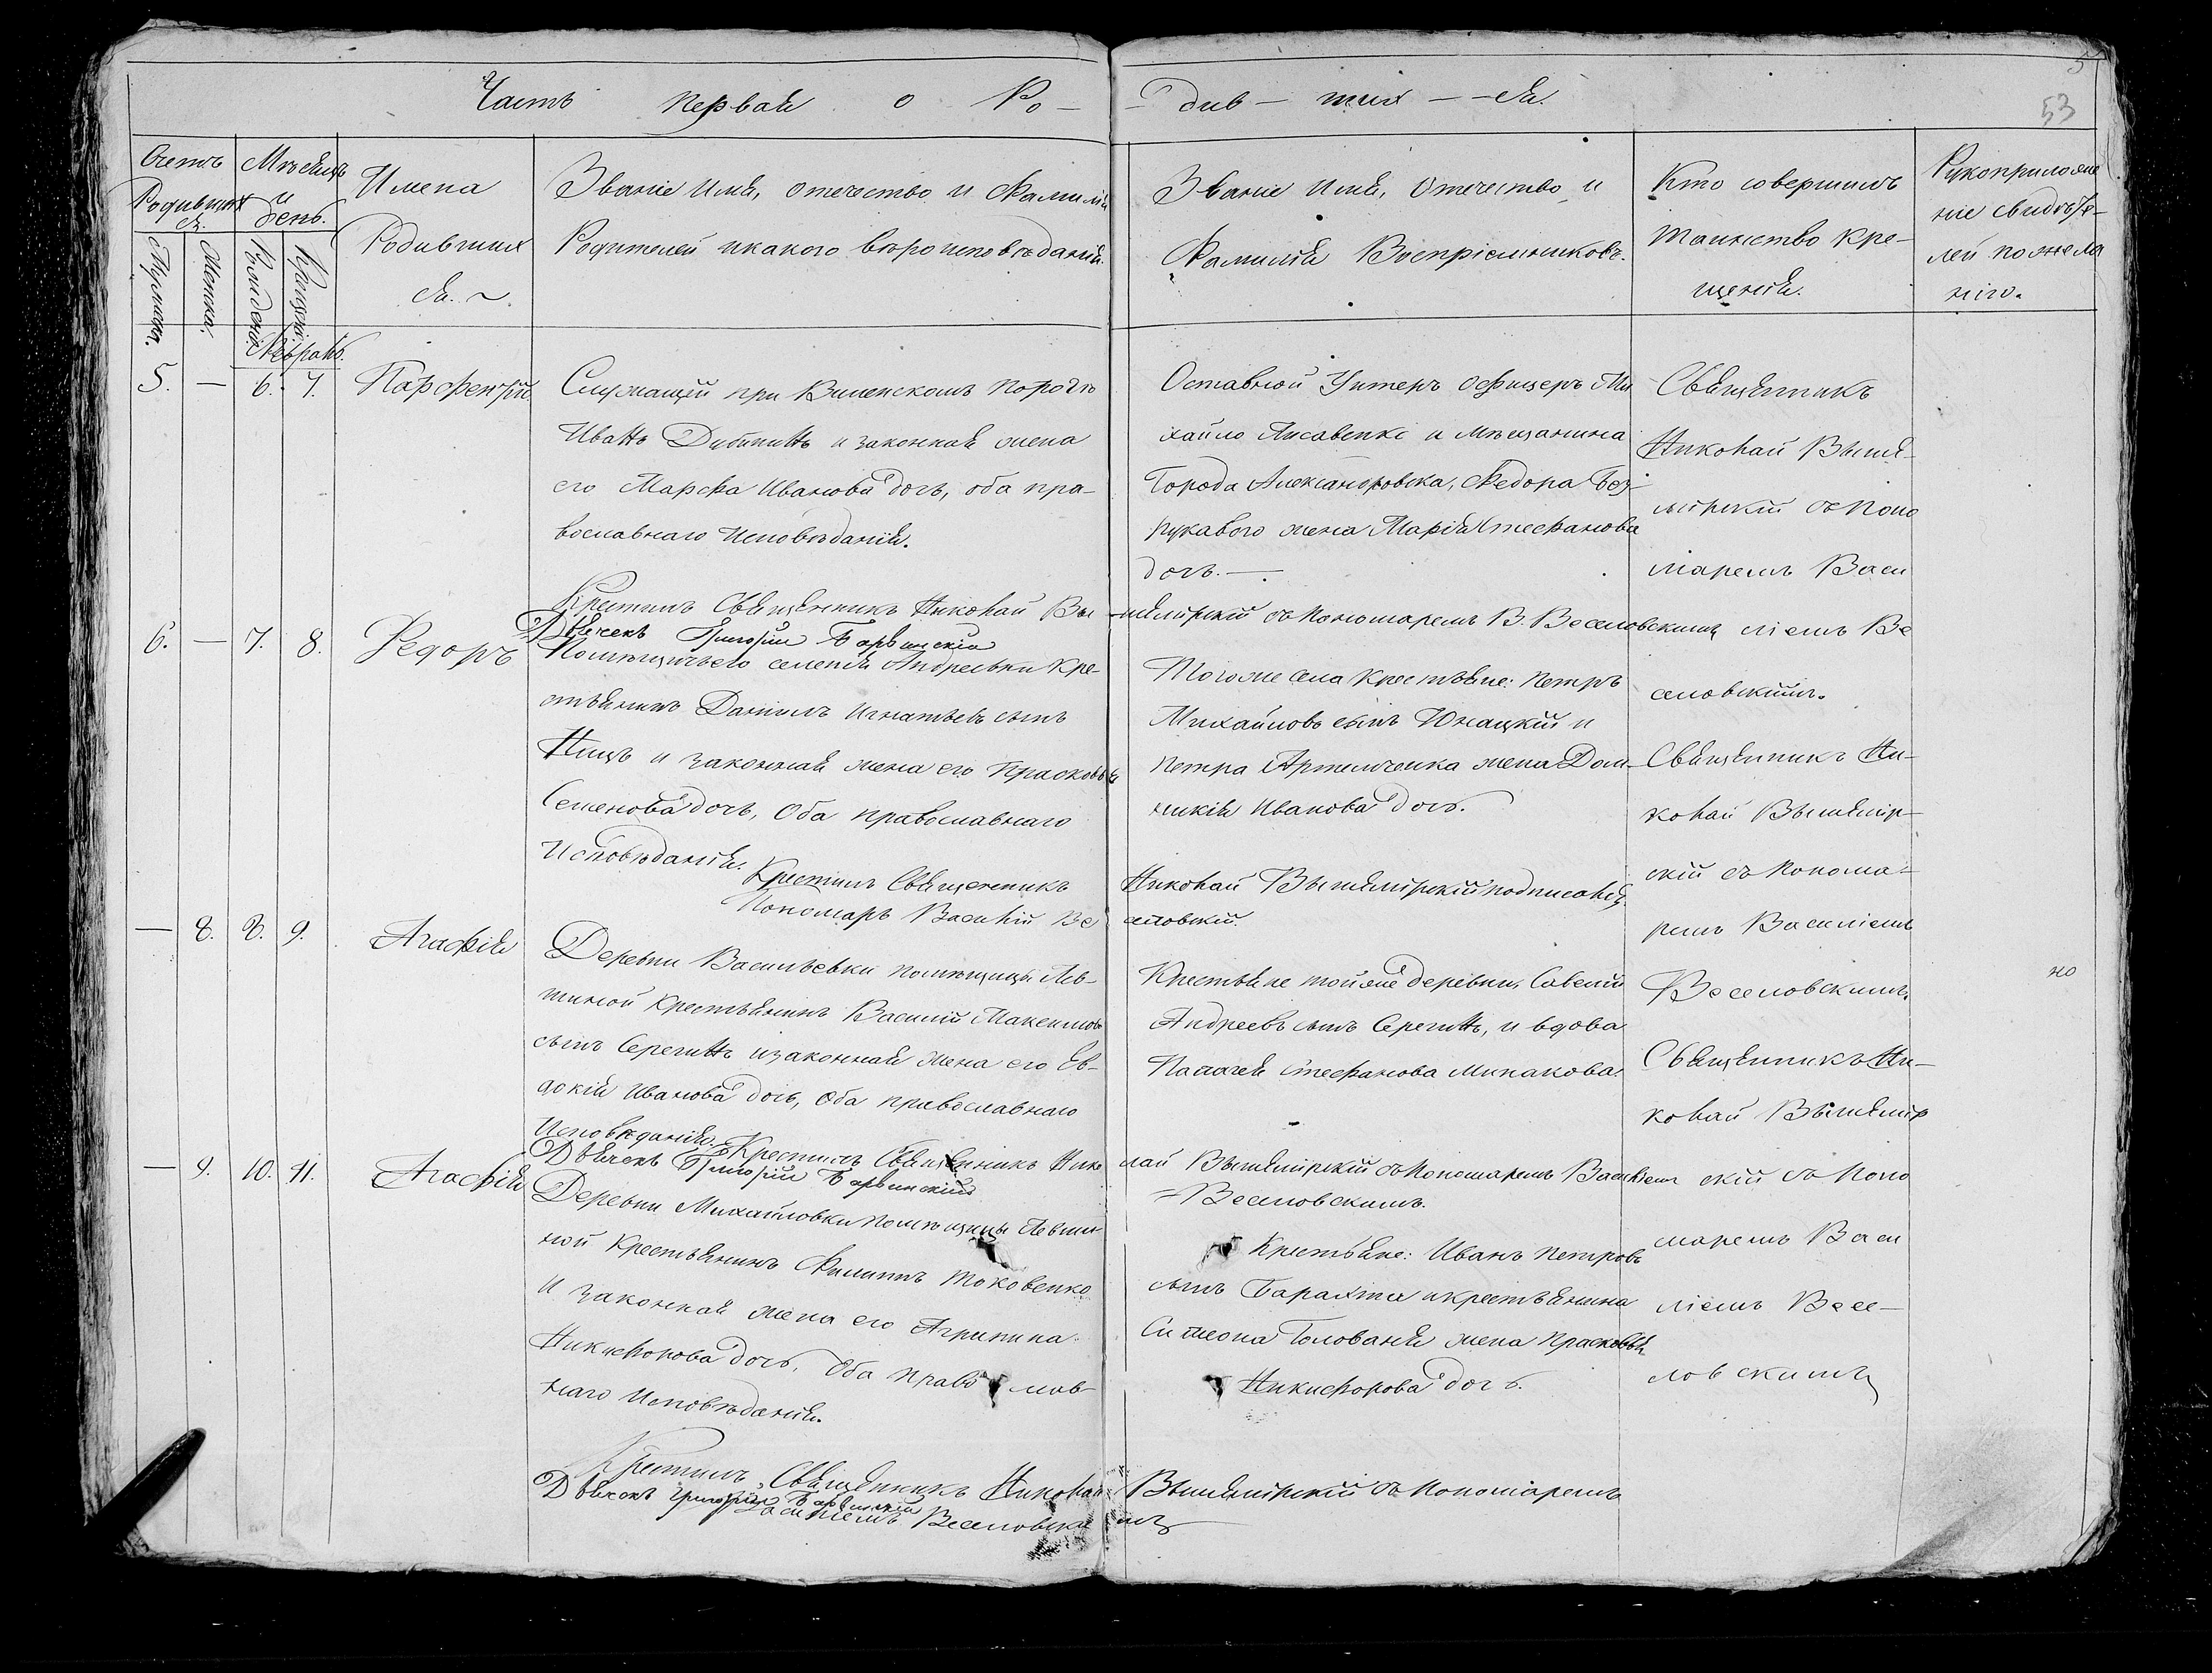 Часть первая о Ро-
-див-ших--ся.
53
Счетъ
Родившихся.
Мужеска.
Женска.
Мѣсяцъ
и
день.
Рожденія.
Крещенія.
Имена
Родивших
ся.
Званіе Имя, отечество и Фамилія
Родителей и какого вѣроисповѣданія.
Званіе Имя, Отечество и
Фамилія Воспріемниковъ.
Кто совершилъ
таинство кре-
щенія.
Рукоприложе
ніе свидѣте-
лей по жела
нію.
Февраль.
5. — 6. 7. Парфентій
Служащій при
Иванъ и законная жена
его Марфа Иванова дочь, оба пра-
вославнаго Исповѣданія.
Оставной Унтеръ офицеръ Ми
хайло Лисавенко и мѣщанина
Города Александровска, Федора Без-
рукавого жена Марія Стефанова
дочь.—
Священникъ
Николай Вышe-
мірскій съ Поно
маремъ Васи
ліемъ Ве
селовскимъ.
Крестилъ Священникъ Николай Вы-шемірскій съ Пономаремъ В. Веселовскимъ
Дьячекъ Григорій Барвинскій
6. — 7. 8. Федоръ
Помѣщичьего селенія Андреевки Кре-
стьянинъ Даніилъ Игнатьевъ сынъ
Ницъ и законная жена его Прасковья
Семенова дочь, Оба православнаго
Исповѣданія.
Тогоже села Крестьяне: Петръ
Михайловъ сынъ Юнацкій и
Петра Артемченка жена Дом-
никія Иванова дочь.
Священникъ Ни-
колай Вышемір-
скій съ Понома-
ремъ Василіемъ
Веселовскимъ.
Крестилъ Священникъ Николай Вышемірскій подписался.
Пономарь Василій Веселовскій.
— 8. 8. 9. Агафія
Деревни Васильевки помѣщицы Лев-
шиной Крестьянинъ Василій Максимовъ
сынъ Серегинъ и законная Жена его Ев-
докія Иванова дочь, Оба православнаго
Исповѣданія.
Крестьяне тойже деревни, Савелій
Андреевъ сынъ Серегинъ, и вдова
Палагея Стефанова Минакова.
Священникъ Ни-
колай Вышемір
скій съ Поно
маремъ Васи
ліемъ Весе-
ловскимъ
Крестилъ Священникъ Нико лай Вышемірскій съ Пономаремъ Василіем
=Веселовскимъ.
Дьячекъ Григорій Барвинскій
— 9. 10. 11. Агафія
Деревни Михайловки помѣщицы Левши-
ной Крестьянинъ Филиппъ Токовенко
И законная жена его Агрипина
Никифорова дочь, Оба Православ-
наго Исповѣданія.
Крестьяне: Иванъ Петровъ
сынъ Барахта и крестьянина
Симеона Голованя жена Прасковья
Никифорова дочь.
Крестилъ Священникъ Николай Вышемірскій съ Пономаремъ
Дьячекъ Григорій Барвинскій
Василіемъ Веселовскимъ